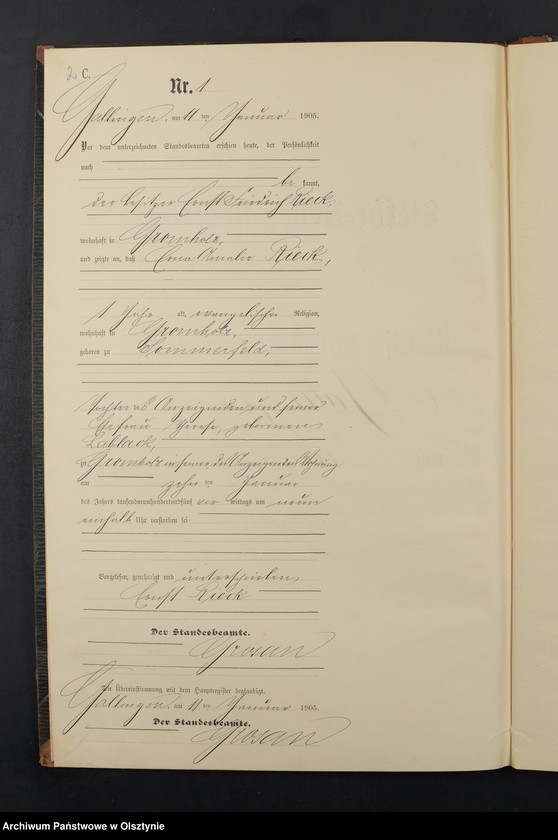 2 C.
Nr. 1
Gallingen, am 11 ten Januar 1905.
Vor dem unterzeichneten Standesbeamten erschien heute, der Persönlichkeit
nach
be kannt,
der Besitzer Ernst Friedrich Rieck,
wohnhaft in Gromholz,
und zeigte an, daß Erna Amalie Rieck,
1 Jahr alt, evangelischer Religion,
wohnhaft in Gromholz,
geboren zu Sommerfeld,
Tochter des Anzeigenden und seiner
Ehefrau geborenen
Lablack,
zu Gromholz in seiner, des Anzeigenden Wohnung
am zehn ten Januar
des Jahres tausendneunhundertundfünf vor mittags um neun
einhalb Uhr verstorben sei
Vorgelesen, genehmigt und unterschrieben
Ernst Rieck
Der Standesbeamte.
Grosan
Die Übereinstimmung mit dem Hauptregister beglaubigt.
Gallingen, am 11 ten Januar 1905.
Der Standesbeamte.
Grosan
Archiwum Państwowe w Olsztynie